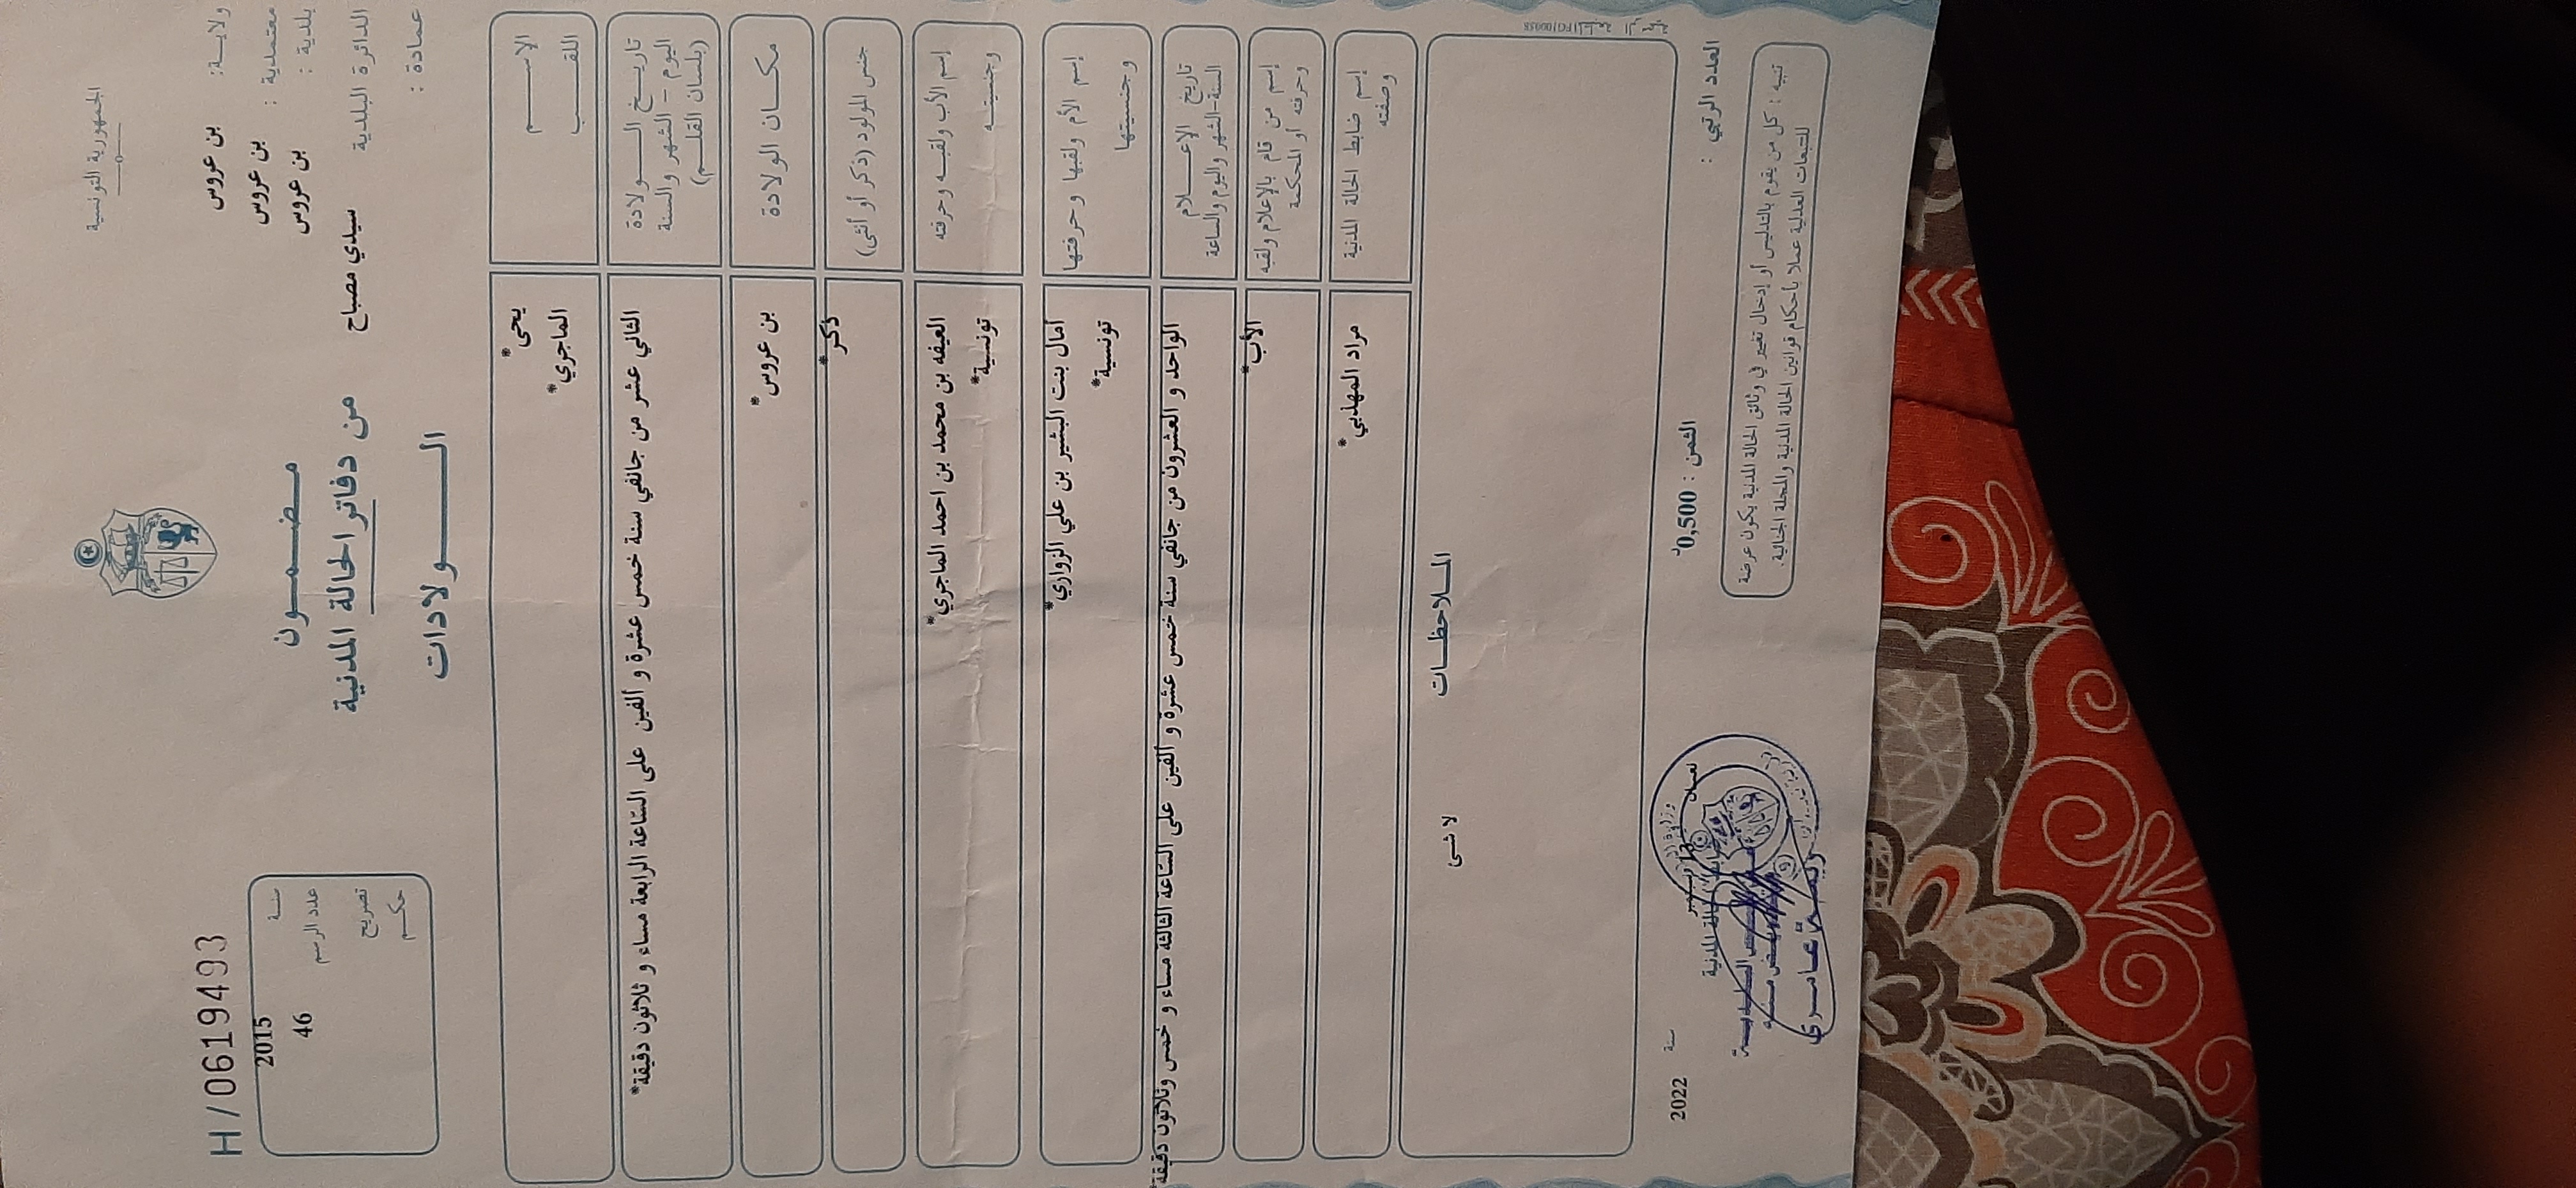 الجمهورية التونسية
ولايـة: بن عروس
معتمدية : بن عروس
بلدية : بن عروس
الدائرة البلدية سيدي مصباح
عمادة :
مـضـمـــون
من دفاتر الحالة المدنية
الــــولادات
H/06194493
سنـة 2015
عدد الرسم 46
تصريح
حكـم
الاســـــم يحى*
اللقـــب الماجري*
تاريــخ الـــــولادة
اليوم - الشهر والسنة
(بلسان القلـــم)
الثاني عشر من جانفي سنة خمس عشرة و ألفين على الساعة الرابعة مساء و ثلاثون دقيقة*
مكــان الولادة بن عروس*
جنس المولود (ذكر أو أنثى) ذكر*
إسم الأب ولقبـه وحرفته العيفه بن محمد بن احمد الماجري*
وجنسيتــه تونسية*
إسم الأم ولقبها وحرفتها أمال بنت البشير بن علي الزواري*
وجنسيتها تونسية*
تاريخ الإعــــلام
السنة-الشهر واليوم والساعة
الواحد و العشرون من جانفي سنة خمس عشرة و ألفين على الساعة الثالثة مساء و خمس وثلاثون دقيقة*
إسم من قام بالإعلام ولقبه
وحرفته أو المحكمة
الأب*
إسم ضابط الحالة المدنية
وصفته
مراد المهذبي*
المـلاحظــات
لا شئ
العدد الرتبي :
الثمن : 0,500د
سنة 2022
تنبيه : كل من يقوم بالتدليس أو إدخال تغيير في وثائق الحالة المدنية يكون عرضة
للتتبعات العدلية عملا بأحكام قوانين الحالة المدنية والمجلة الجنائية.